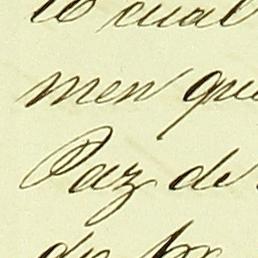 lo cual
men que
Paz de